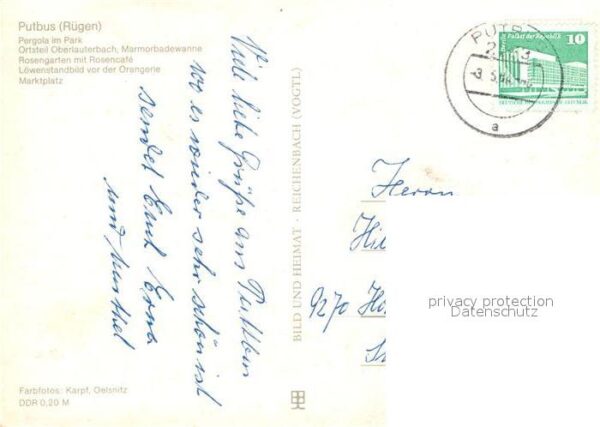 Putbus (Rügen)
Pergola im Park
Ortsteil Oberlauterbach, Marmorbadewanne
Rosengarten mit Rosencafé
Löwenstandbild vor der Orangerie
Marktplatz
Viele liebe Grüße aus Putbus
wo es wieder sehr schön ist
sendet Euch Erna
und
BILD UND HEIMAT · REICHENBACH (VOGTL)
PUTB
a
Palast der Republik 10
Herrn
Hil
9270 Ho
privacy protection
Datenschutz
Farbfotos: Karpf, Oelsnitz
DDR 0,20 M